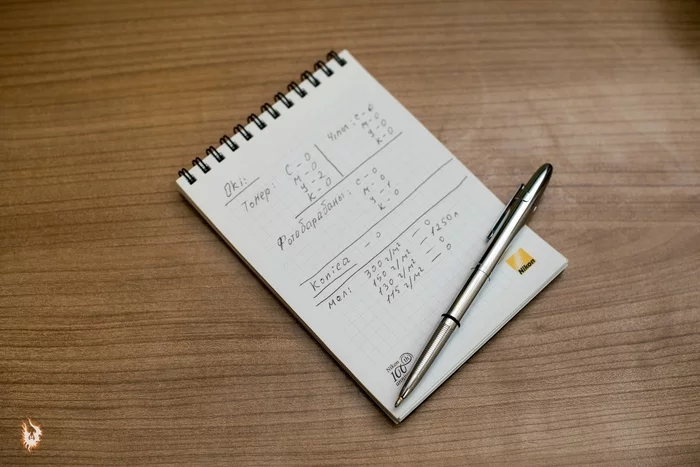 Oki:
Тонер: C - 0
M - 0
Y - 2
K - 0
Чипы: C - 0
M - 0
Y - 0
K - 0
Фотобарабаны: C - 0
M - 0
Y - 1
K - 0
Konica - 0
мел: 300 г/м² - 0
150 г/м² - 1250 л
130 г/м² - 0
115 г/м² - 0
Nikon
Nikon
100th